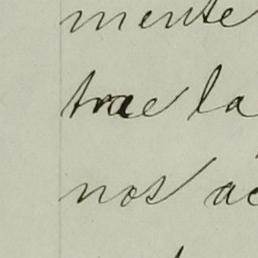 mente
trae la
nos ac